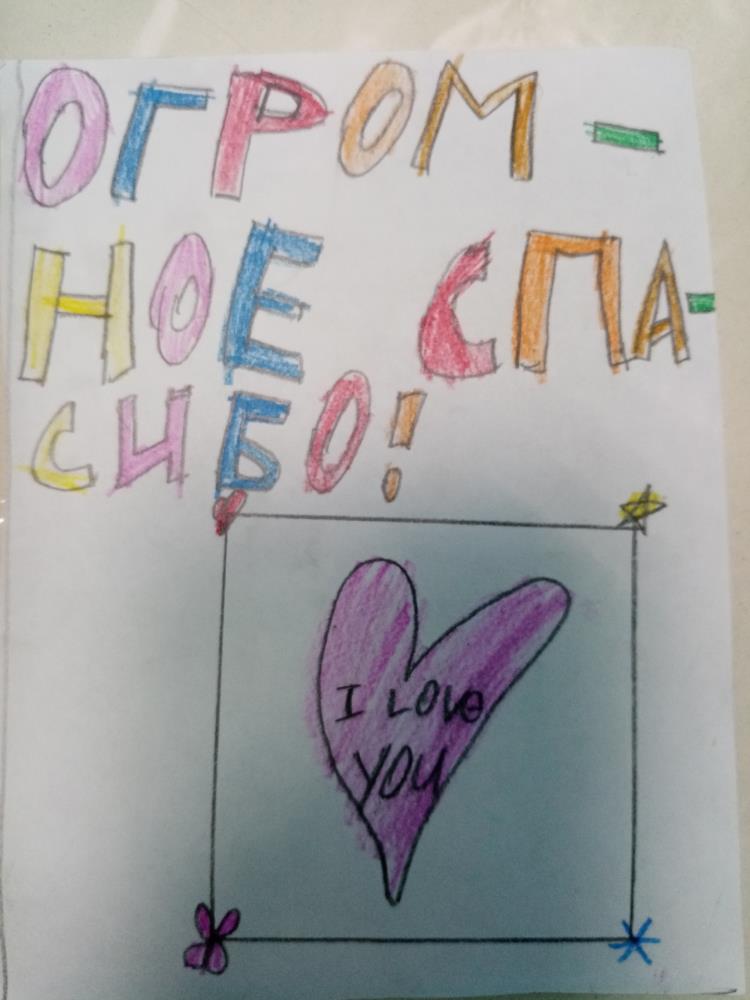 ОГРОМ-
НОЕ СПА-
СИБО!
I LOVE
YOU